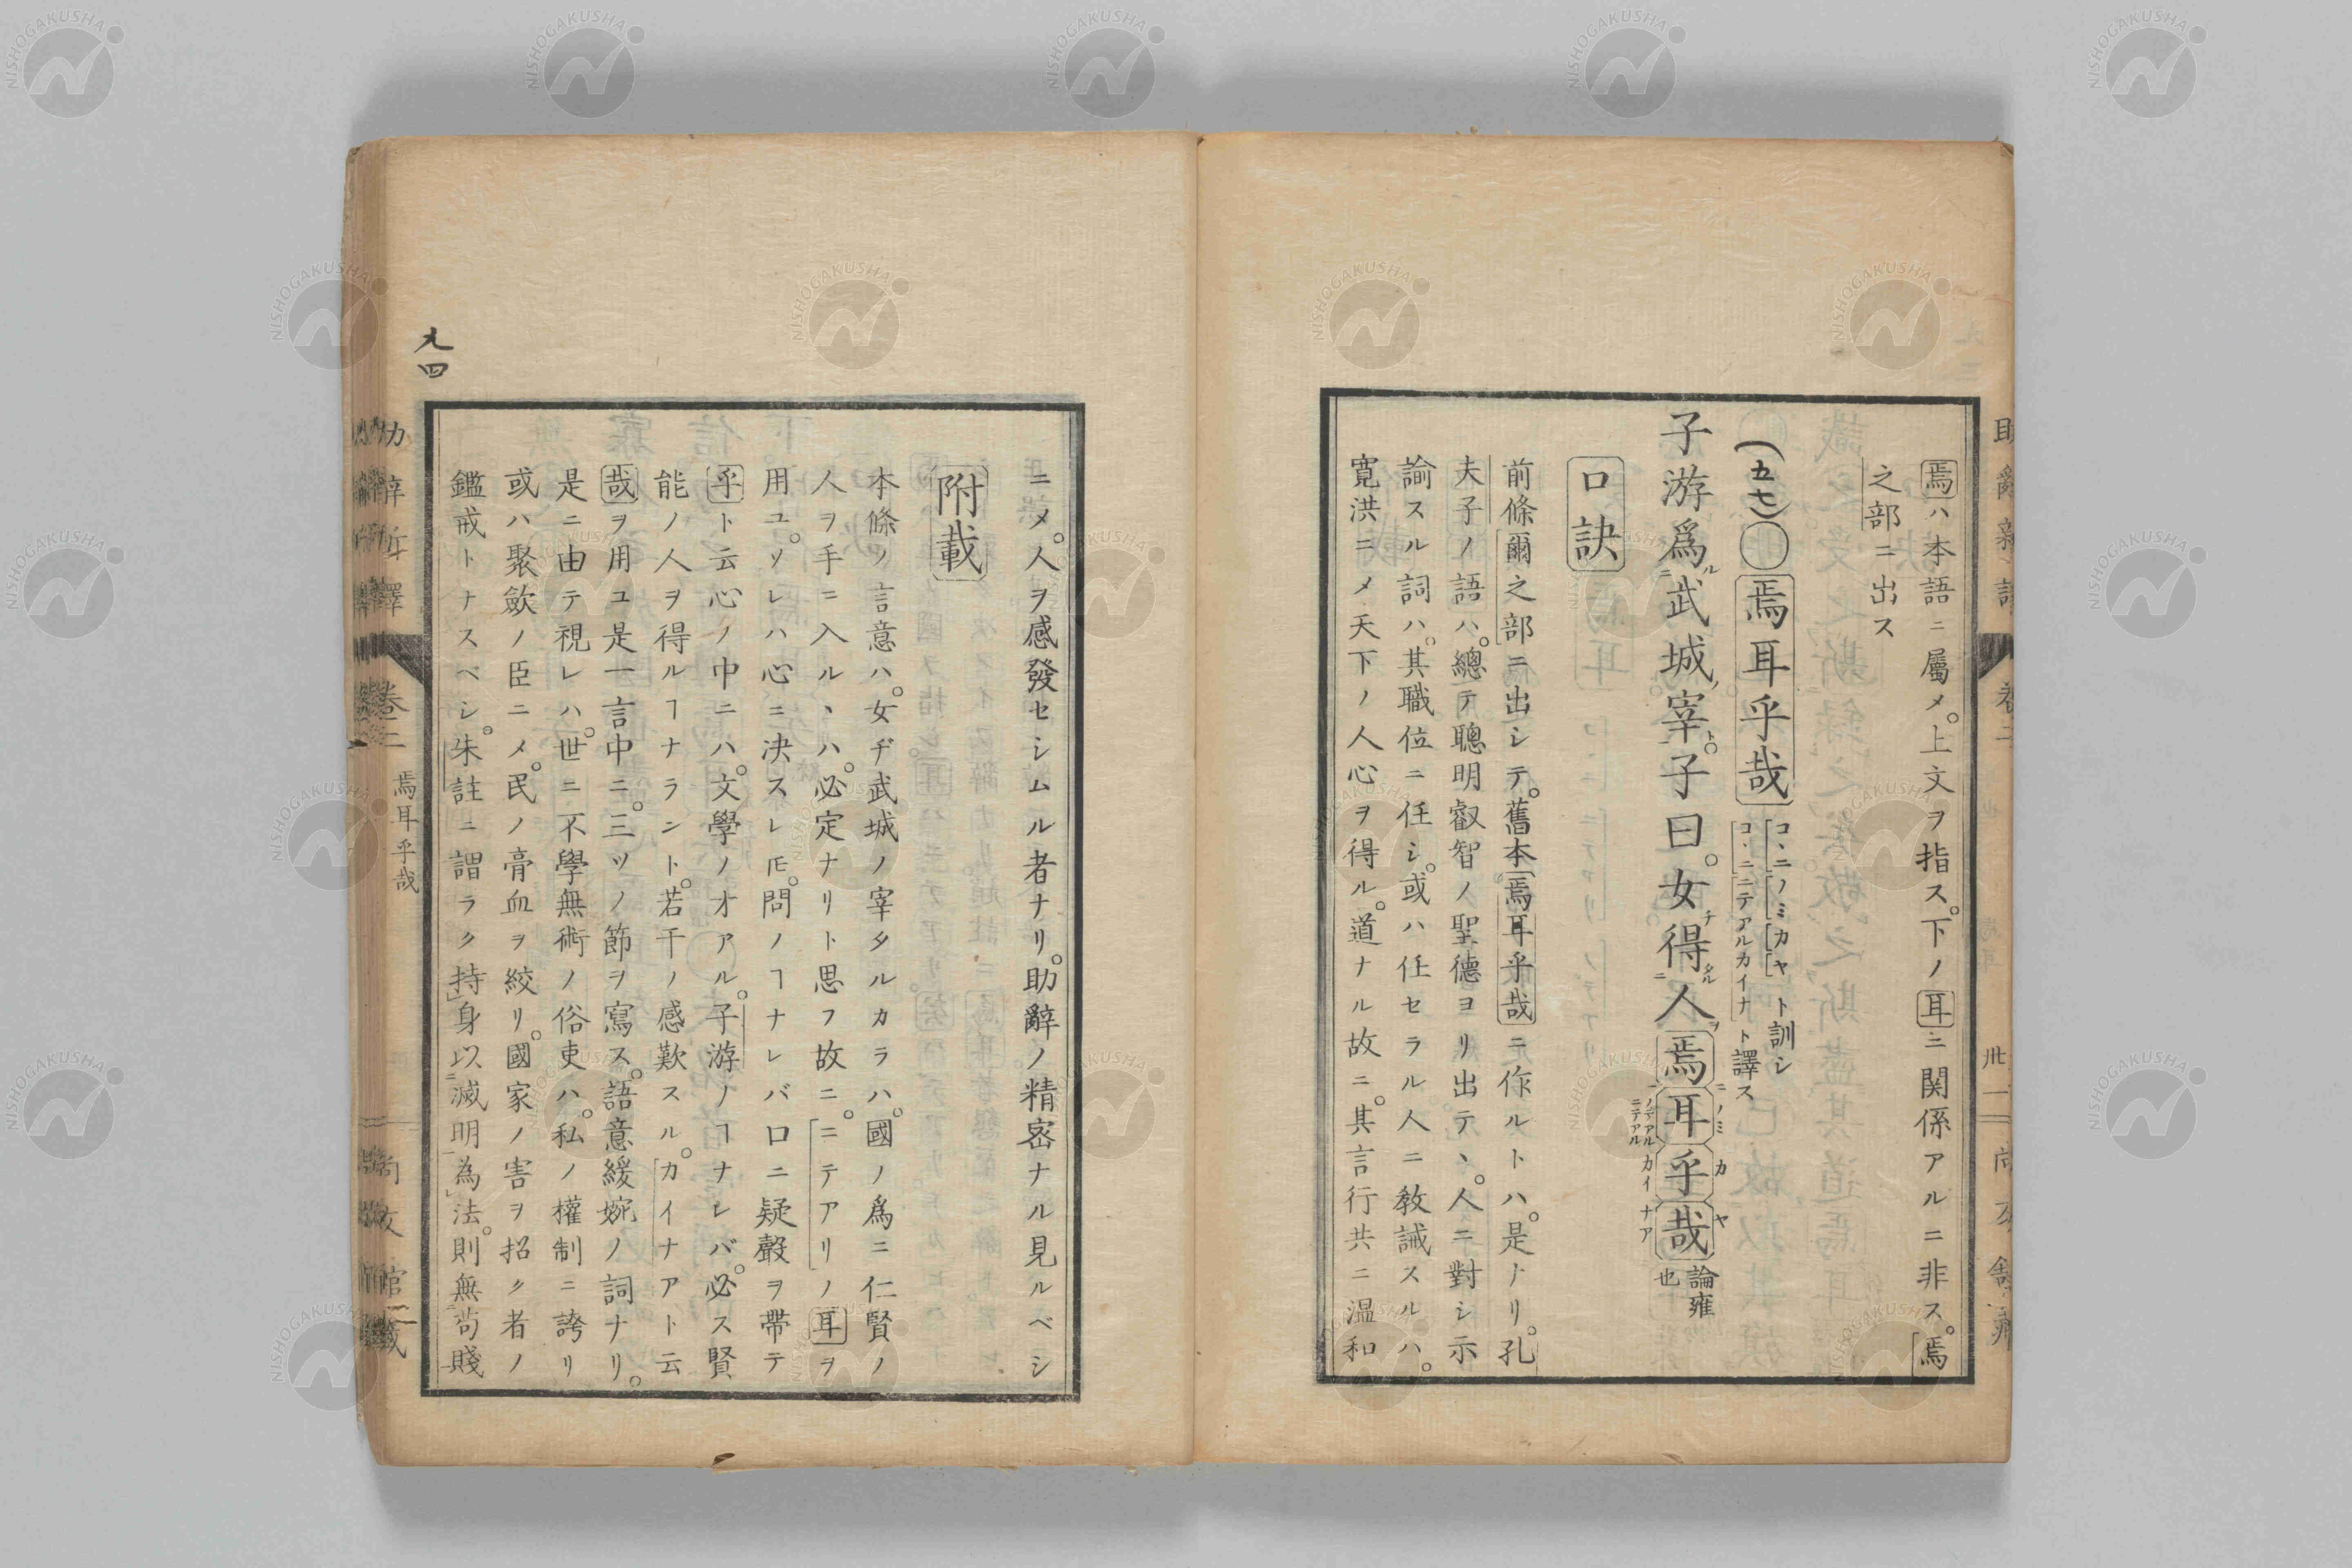 焉ハ本語ニ屬メ。上文ヲ指ス。下ノ耳ニ関係アルニ非ス。焉
之部ニ出ス
(五七)〇焉耳乎哉 コヽニノミカヤト訓シ コヽニニテアルカイナト譯ス
子游爲ル武城宰ト。子曰。女得人ヲ焉耳乎哉 論雍也
口訣
前條爾之部ニ出シテ。舊本焉耳乎哉ニ作ルトハ。是ナリ。孔
夫子ノ語ハ。總テ聰明叡智ノ聖德ヨリ出テヽ。人ニ對シ示
諭スル詞ハ。其職位ニ任シ。或ハ任セラル人ニ教誡スルハ。
寛洪ニメ天下ノ人心ヲ得ル。道ナル故ニ。其言行共ニ温和
ニメ。人ヲ感發セシムル者ナリ。助辭ノ精密ナル見ルベシ
附載
本條ノ言意ハ。女ヂ武城ノ宰タルカラハ。國ノ爲ニ仁賢ノ
人ヲ手ニ入ルヽハ。必定ナリト思フ故ニ。ニテアリノ耳ヲ
用ユ。ソレハ心ニ決スレ𪜈。問ノヿナレバ口ニ疑聲ヲ帶テ
乎ト云心ノ中ニハ。文學ノオアル。子游ノヿナレバ。必ス賢
能ノ人ヲ得ルヿナラント。若干ノ感歎スル。カイナアト云
哉ヲ用ユ是一言中ニ。三ツノ節ヲ寫ス。語意緩婉ノ詞ナリ。
是ニ由テ視レハ。世ニ不學無術ノ俗吏ハ。私ノ權制ニ誇リ
或ハ聚歛ノ臣ニメ。民ノ膏血ヲ絞リ。國家ノ害ヲ招ク者ノ
鑑戒トナスベシ。朱註ニ謂ラク持身以滅明為法。則無苟賤
九四
卷二
焉耳乎哉
NISHOGAKUSHA